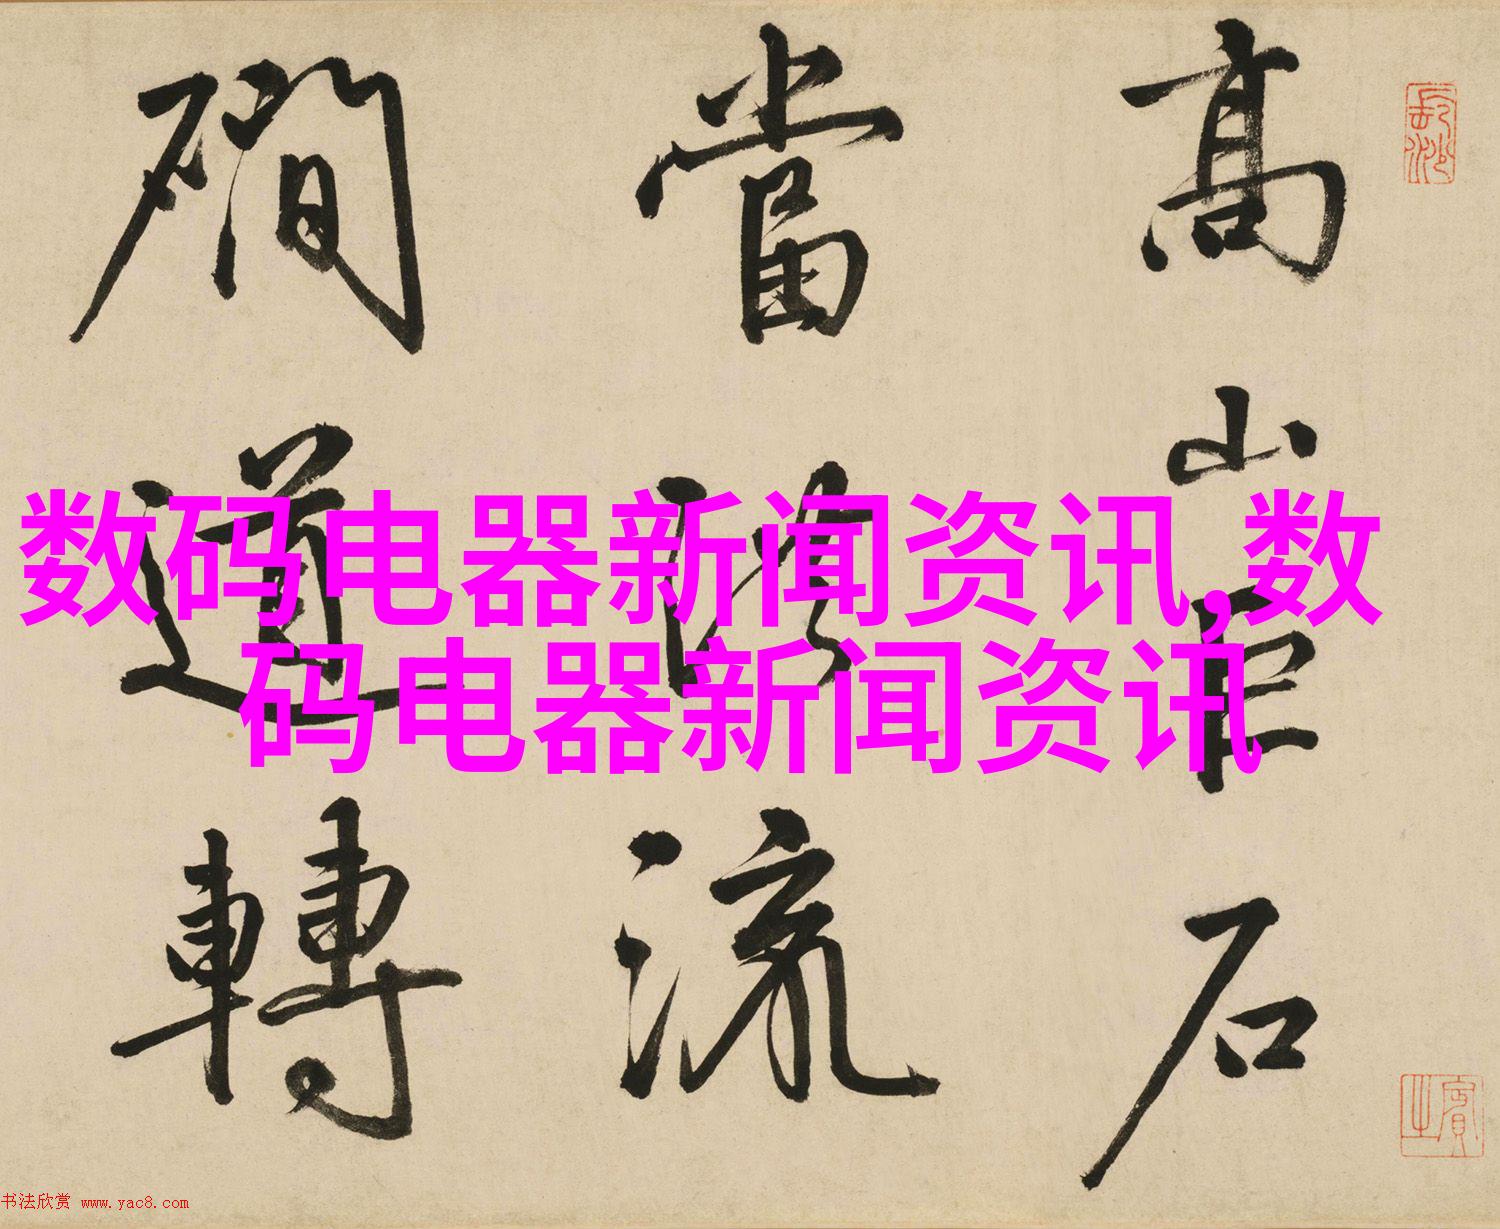 高山巨石
當路流
磵道轉
数码电器新闻资讯,数
码电器新闻资讯
书法欣赏 www.yac8.com